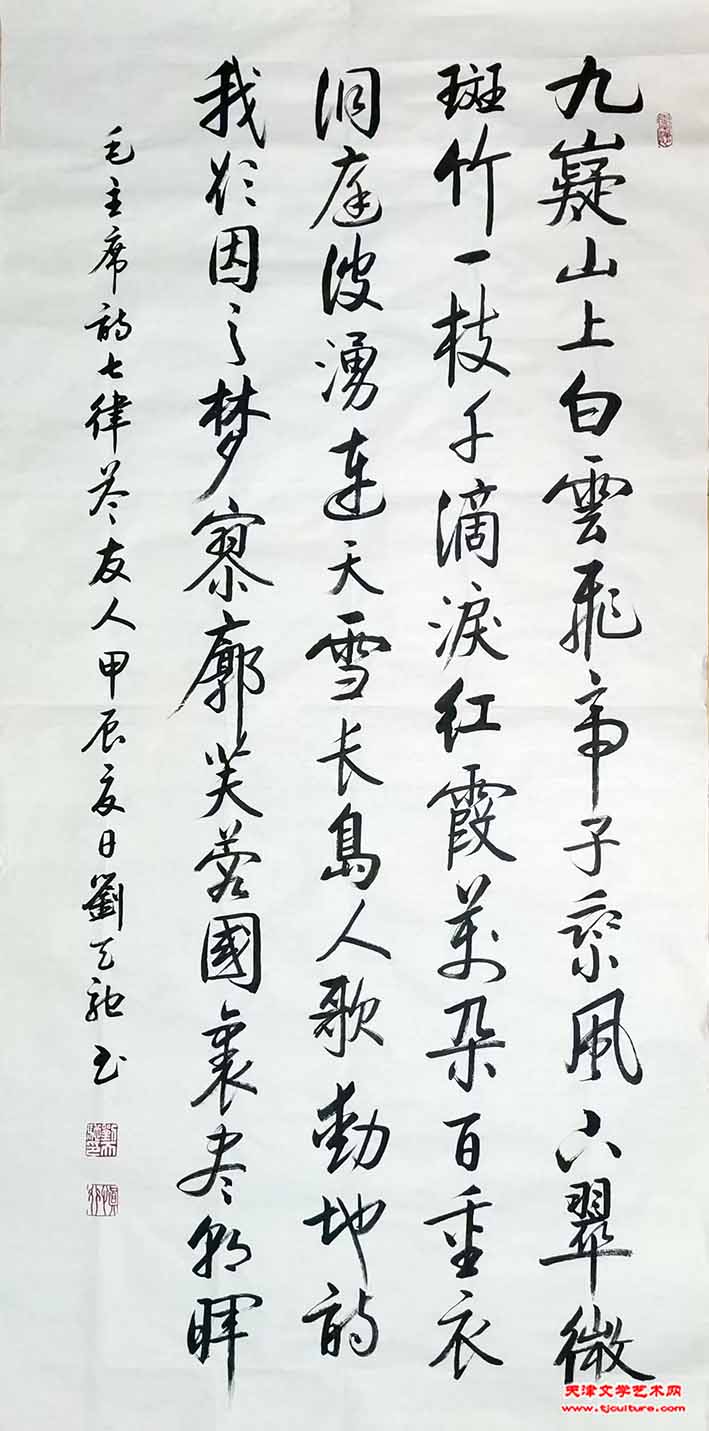 九嶷山上白雲飛帝子乘風下翠微
斑竹一枝千滴淚紅霞萬朵百重衣
洞庭波湧連天雪長島人歌動地詩
我欲因之梦寥廓芙蓉國裏尽朝暉
毛主席詩七律答友人甲辰夏日劉天馳書
天津文学艺术网
www.tjculture.com